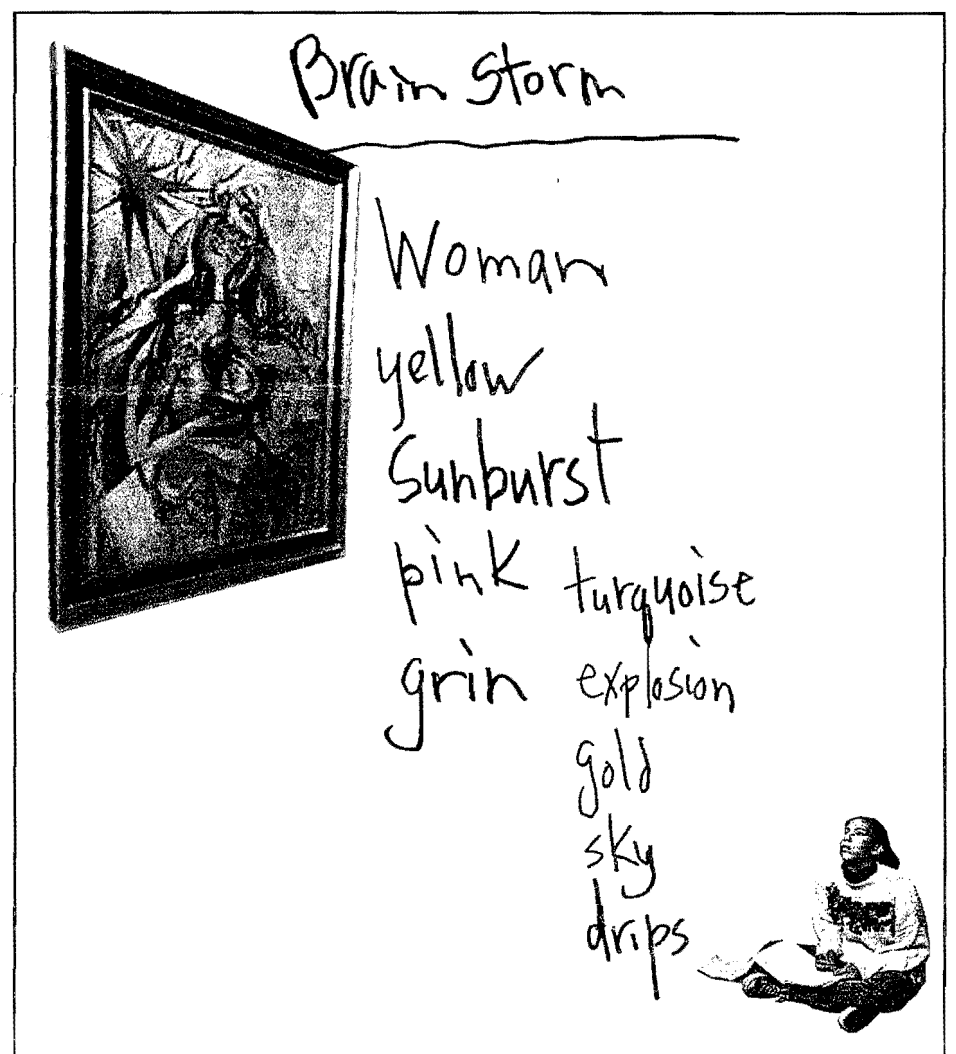 Brain Storm
Woman
yellow
Sunburst
pink
grin
turquoise
explosion
gold
sky
drips